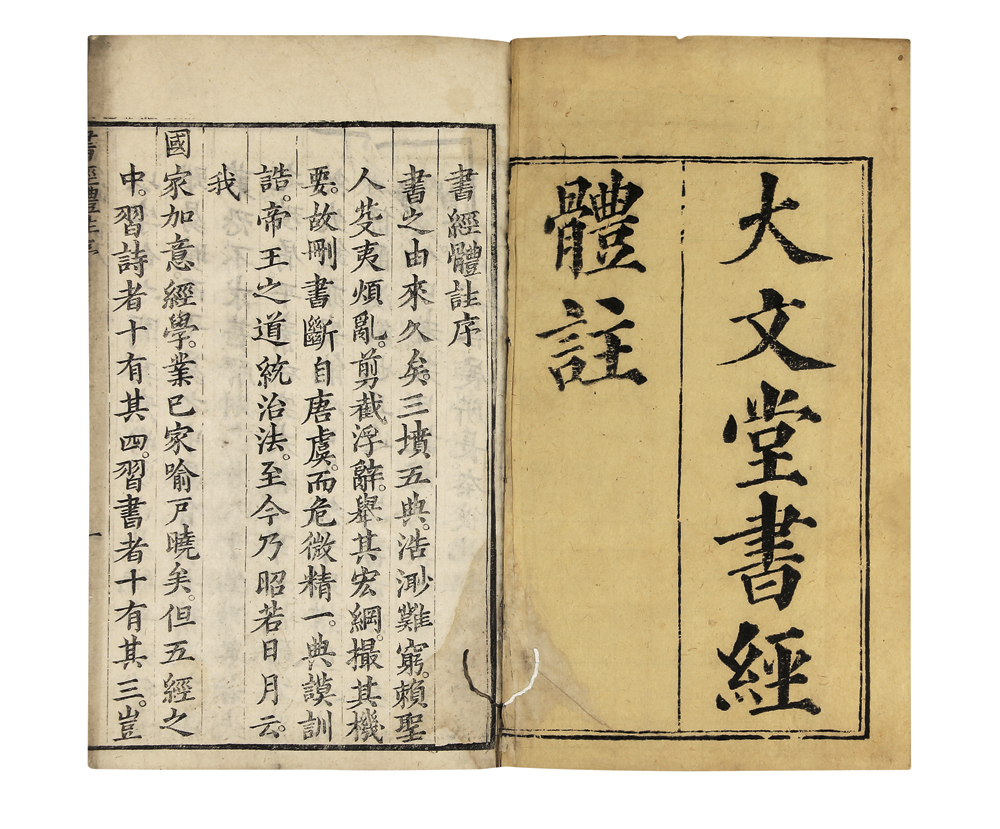 大文堂書經
體註
書經體註序
書之由來久矣。三墳五典。浩渺難窮。賴聖
人芟夷煩亂。剪截浮辭。舉其宏綱。撮其機
要。故刪書斷自唐虞。而危微精一。典謨訓
誥。帝王之道統治法。至今乃昭若日月云。
我
國家加意經學。業已家喻戸曉矣。但五經之
中。習詩者十有其四。習書者十有其三。豈
書經體註序
一